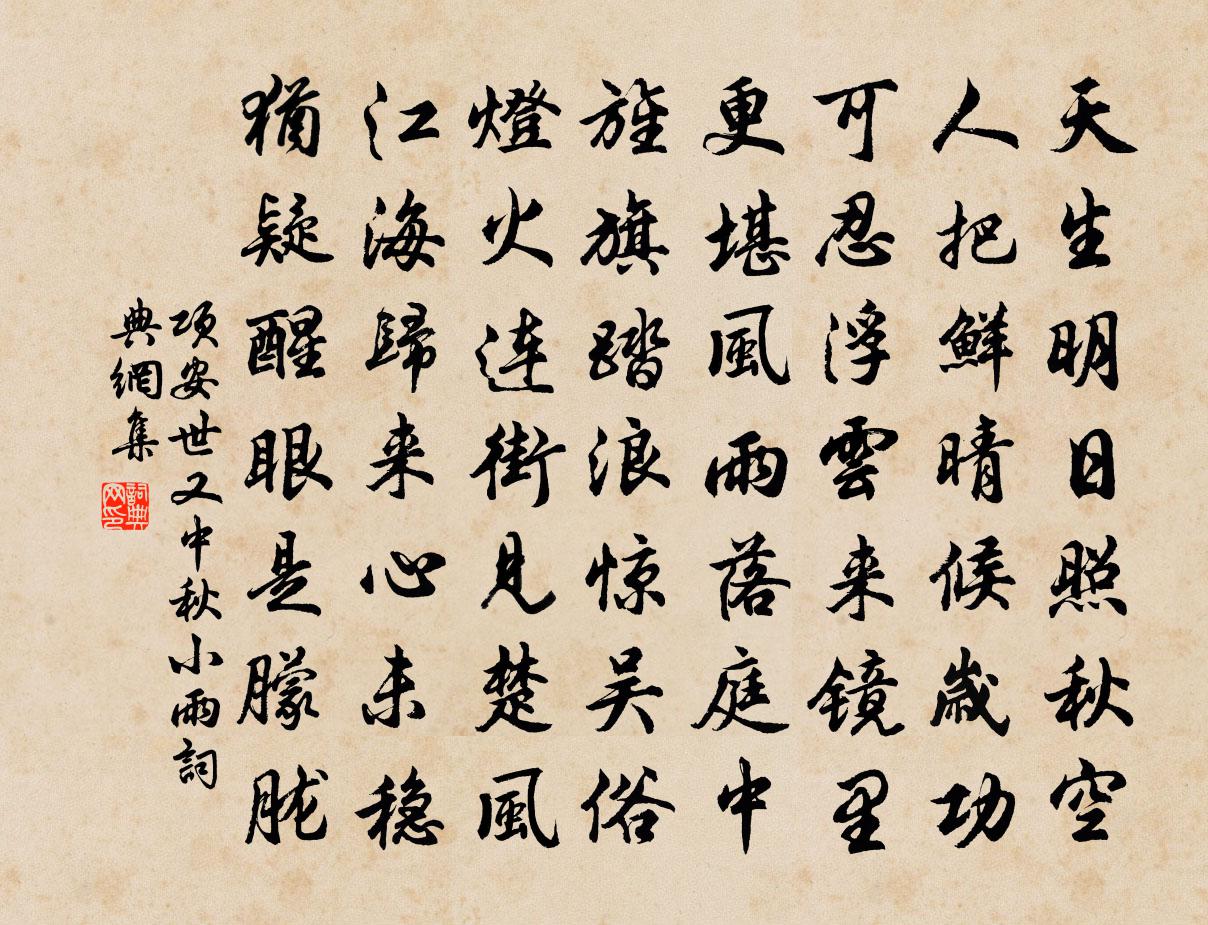 天生明日照秋空
人把鮮晴候歲功
可忍浮雲来镜里
更堪風雨落庭中
旌旗踏浪惊吴俗
燈火连街見楚風
江海歸来心未穏
猶疑醒眼是朦胧
项安世又中秋小雨詞
典網集
詞典
网印